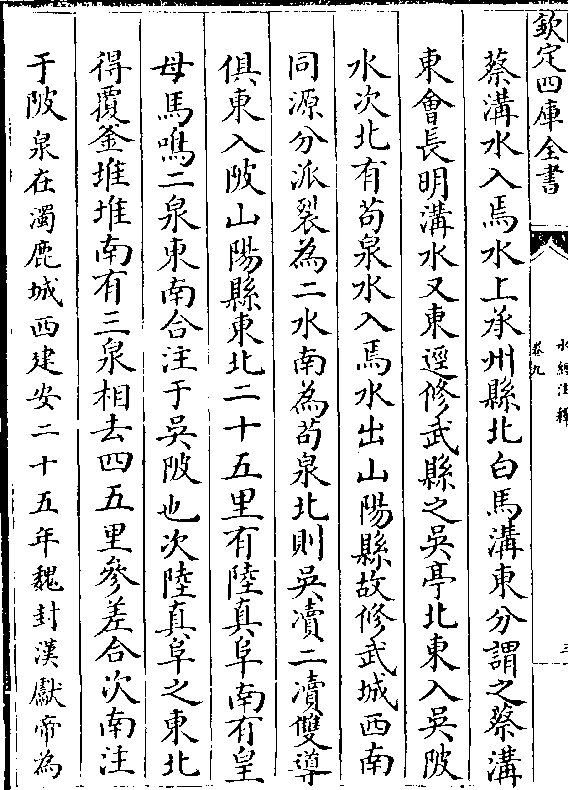 欽定四庫全書
水經注釋
卷九
三
蔡溝水入焉水上承州縣北白馬溝東分謂之蔡溝
東會長明溝水又東逕修武縣之吳亭北東入吳陂
水次北有苟泉水入焉水出山陽縣故修武城西南
同源分派裂為二水南為苟泉北則吳瀆二瀆雙導
俱東入陂山陽縣東北二十五里有陸真阜南有皇
母馬鳴二泉東南合注于吳陂也次陸真阜之東北
得覆釜堆堆南有三泉相去四五里參差合次南注
于陂泉在濁鹿城西建安二十五年魏封漢獻帝為